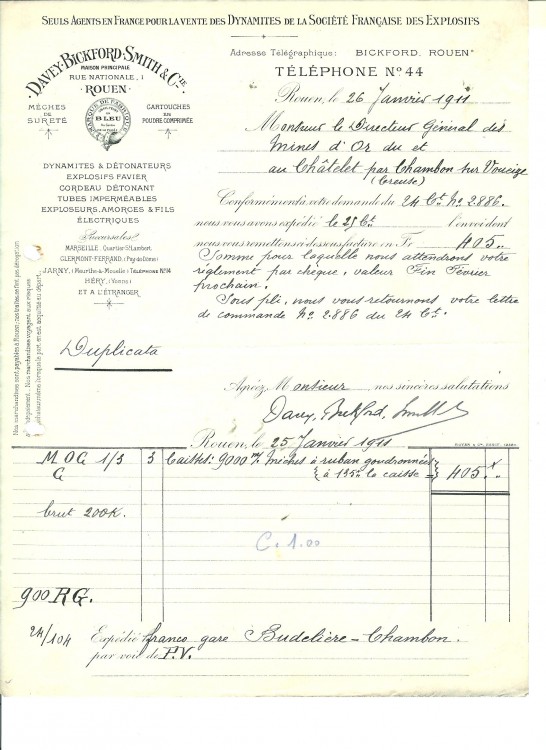 SEULS AGENTS EN FRANCE POUR LA VENTE DES DYNAMITES DE LA SOCIÉTÉ FRANÇAISE DES EXPLOSIFS
DAVEY·BICKFORD·SMITH & CIE
MAISON PRINCIPALE
RUE NATIONALE, 1
·ROUEN·
MÈCHES DE SURETÉ
MARQUE DE FABRIQUE
BLEU
CARTOUCHES EN POUDRE COMPRIMÉE
DYNAMITES & DÉTONATEURS
EXPLOSIFS FAVIER
CORDEAU DÉTONANT
TUBES IMPERMÉABLES
EXPLOSEURS, AMORCES & FILS
ÉLECTRIQUES
Succursales
MARSEILLE, Quartier St Lambert,
CLERMONT-FERRAND (Puy de Dôme)
JARNY, (Meurthe-&-Moselle) TÉLÉPHONE No 14
HÉRY, (YONNE)
ET A L'ÉTRANGER
Adresse Télégraphique: BICKFORD. ROUEN
TÉLÉPHONE No 44
Rouen, le 26 Janvier 1911
Monsieur le Directeur Général des
Mines d'Or du et
au Châtelet par Chambon sur Voueize
(Creuse)
Conformément à votre demande du 24 Ct No 2886.
nous vous avons expédié le 25 Ct l'envoi dont
nous vous remettons ci dessous facture en Fr 405..
Somme pour laquelle nous attendrons votre
règlement par chèque, valeur Fin Février
prochain.
Sous pli, nous vous retournons votre lettre
de commande No 2886 du 24 Ct.
Duplicata
Agréez Monsieur nos sincères salutations
Davey, Bickford, Smith &
Rouen, le 25 Janvier 1911
M O G 1/3 3 Caisses: 9000 m/ Mèches à ruban goudronnées
G à 135 la caisse = 405..
brut 200K.
C. 1.00
900 RG.
24/104 Expédié franco gare Budelière-Chambon.
par voie de P.V.